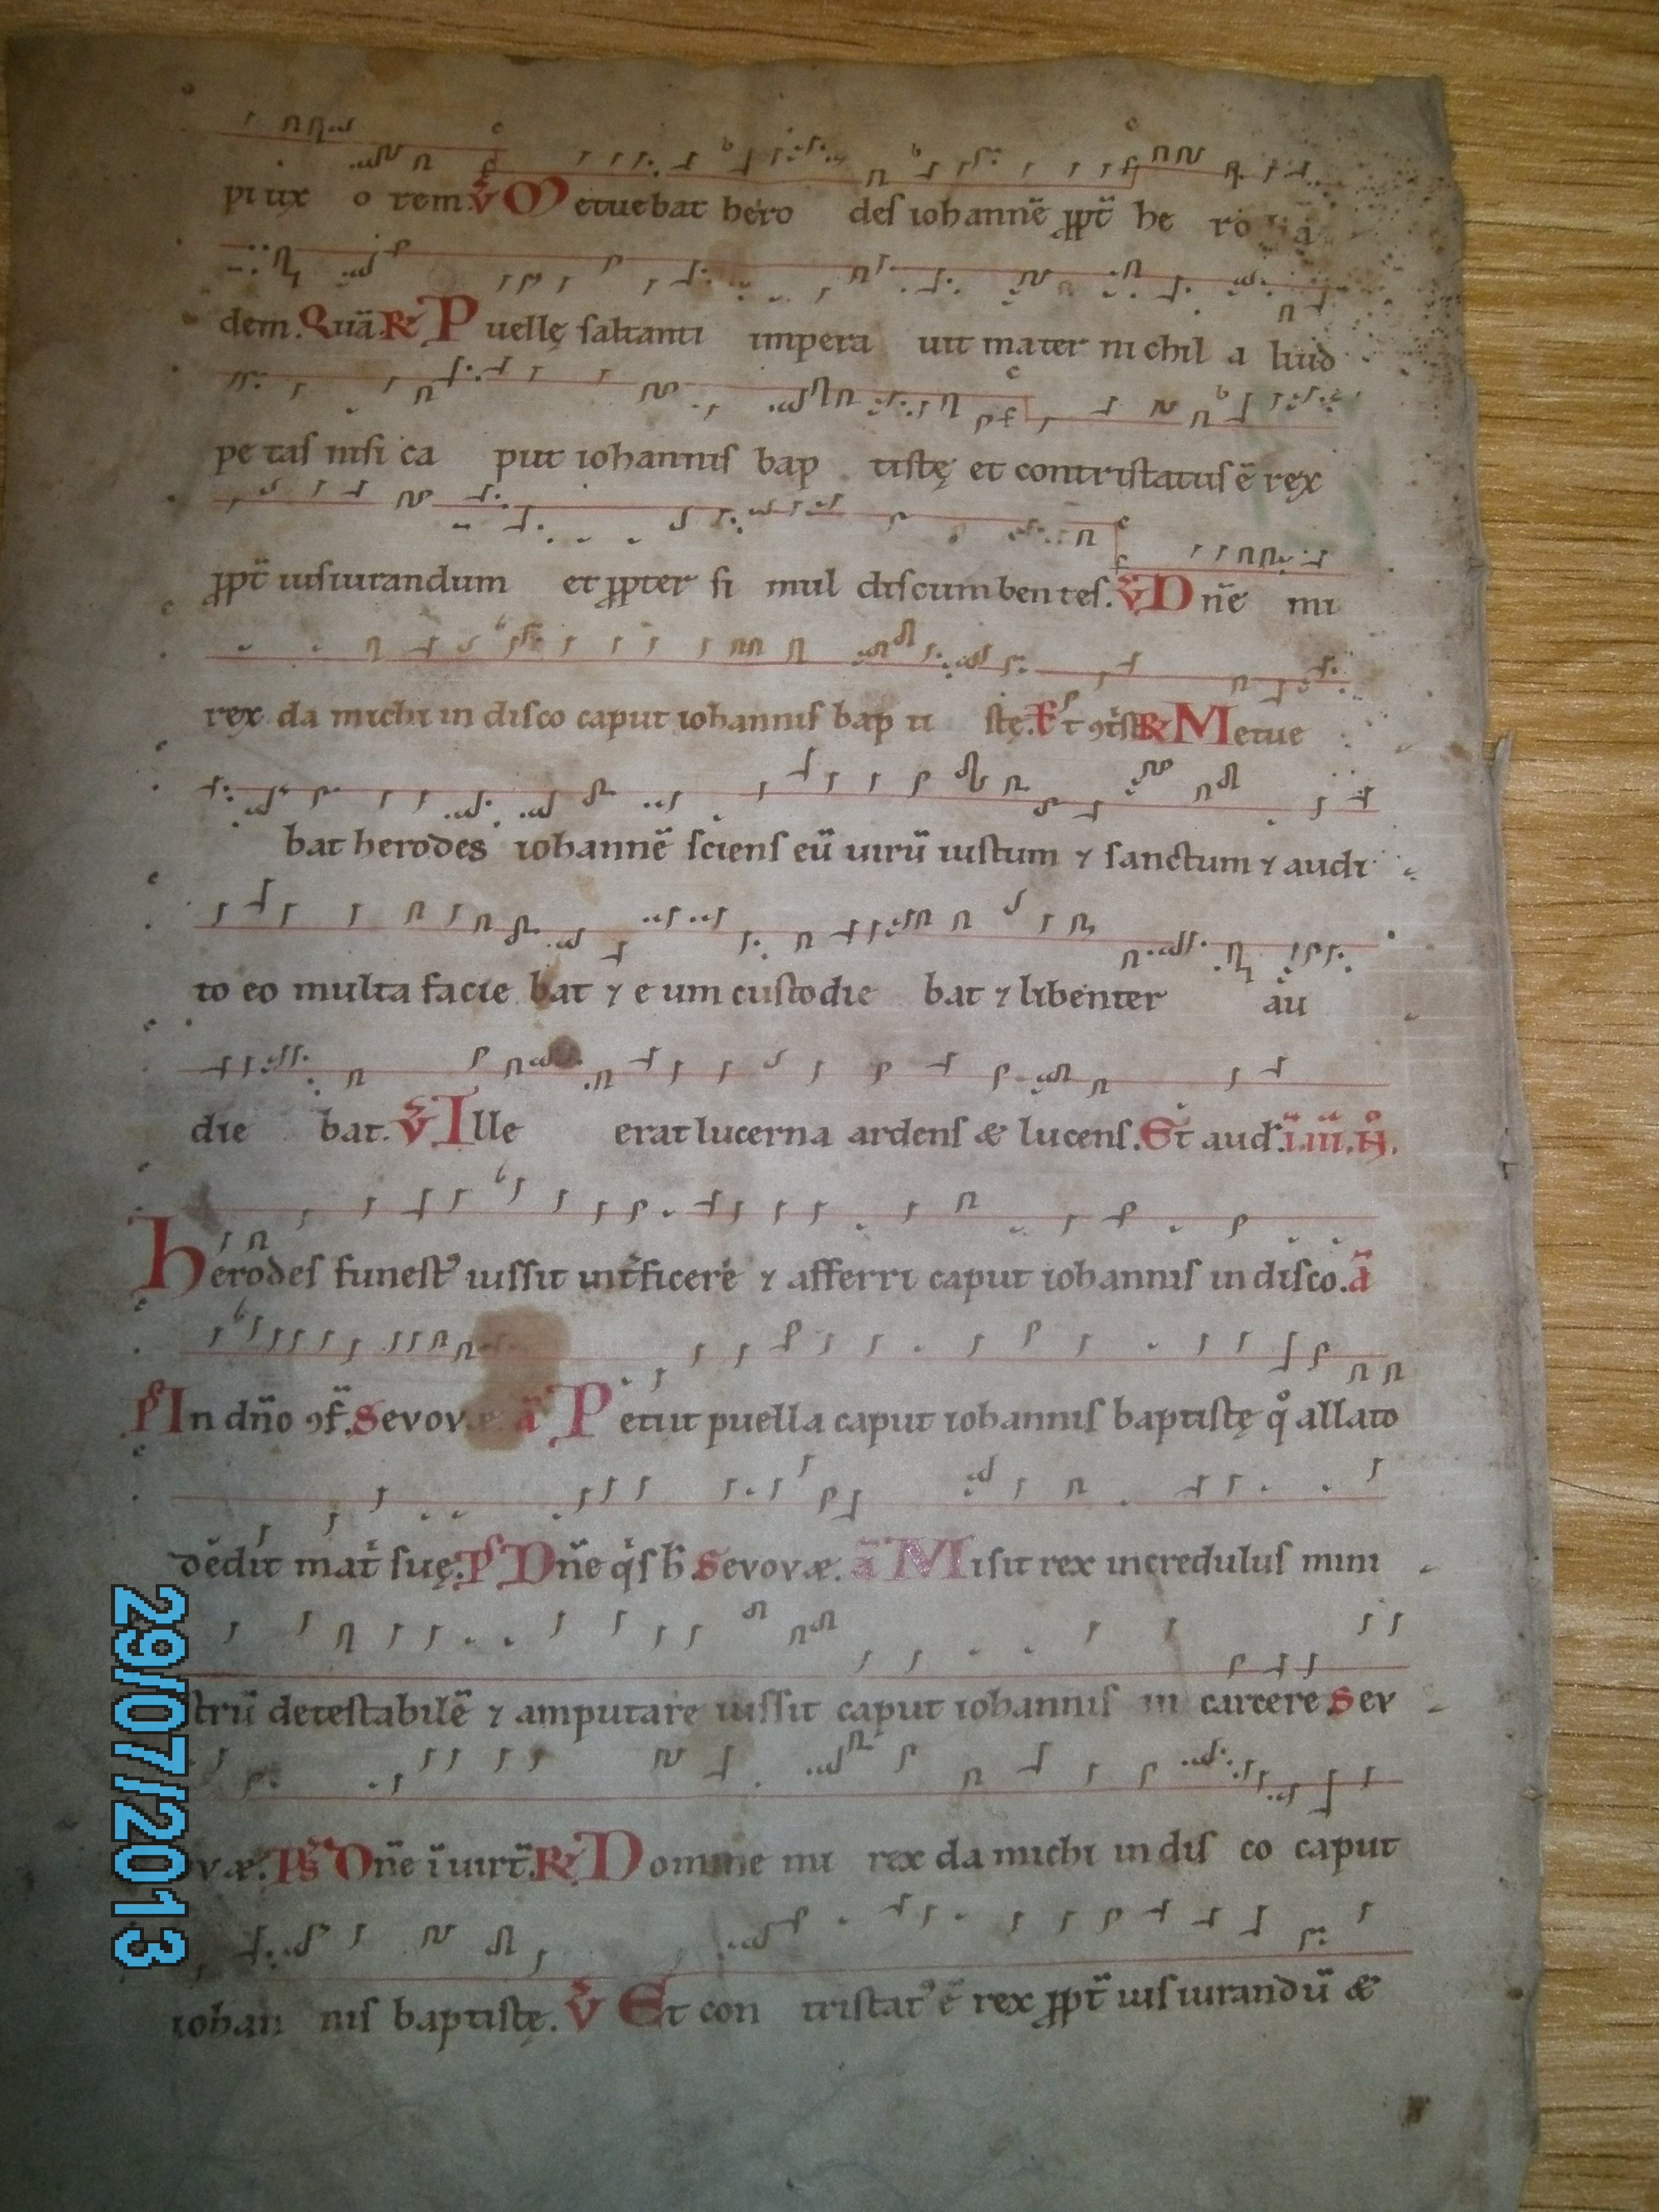 pi ux o rem. V̄ Metuebat hero des iohannē ꝓpt̄ he ro
dem. Quā. R Puellę saltanti impera uit mater nichil a liud
petas nisi ca put iohannis bap tistę et contristatus ē rex
ꝓpt̄ iusiurandum et ꝓpter si mul discumbentes. V̄ Dn̄e mi
rex da michi in disco caput iohannis bap ti stę. Et ꝯt̄st R Metue
bat herodes iohannē sciens eū uirū iustum ⁊ sanctum ⁊ audi
to eo multa facie bat ⁊ e um custodie bat ⁊ libenter au
die bat. V̄ Ille erat lucerna ardens & lucens. Et aud. ī. iii. N̄.
Herodes funest᾿ iussit int̄ficere ⁊ afferri caput iohannis in disco. ā
P̄ In dn̄o ꝯf̄. Sevovæ ā Petiit puella caput iohannis baptistę q° allato
dedit mat̄ suę. P̄ Dn̄e q̄s h̄ Sevovæ. ā Misit rex incredulus mini
strū detestabilē ⁊ amputare iussit caput iohannis in carcere Sev
ovæ. P̄s Dn̄e ī uirt̄. R Domine mi rex da michi in dis co caput
iohan nis baptistę. V̄ Et con tristat᾿ ē rex ꝓpt̄ ius iurandū &
29/07/2013